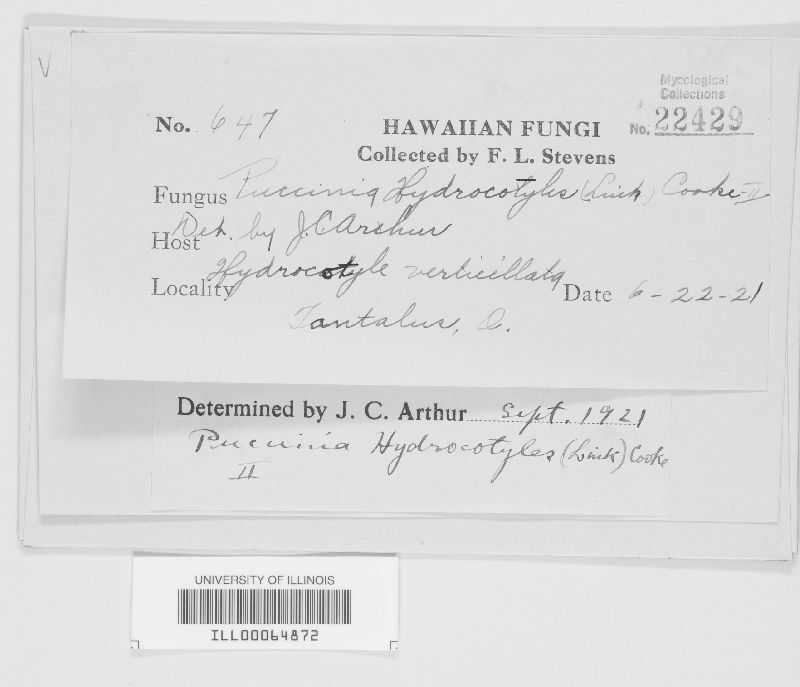 V
Mycological
Collections
No. 22429
No. 647
HAWAIIAN FUNGI
Collected by F. L. Stevens
Fungus Puccinia Hydrocotyles (Link) Cooke II
Det. by J.C. Arthur
Host Hydrocotyle verticillata
Locality Tantalus, O.
Date 6-22-21
Determined by J. C. Arthur Sept. 1921
Puccinia Hydrocotyles (Link) Cooke
II
UNIVERSITY OF ILLINOIS
ILL00064872